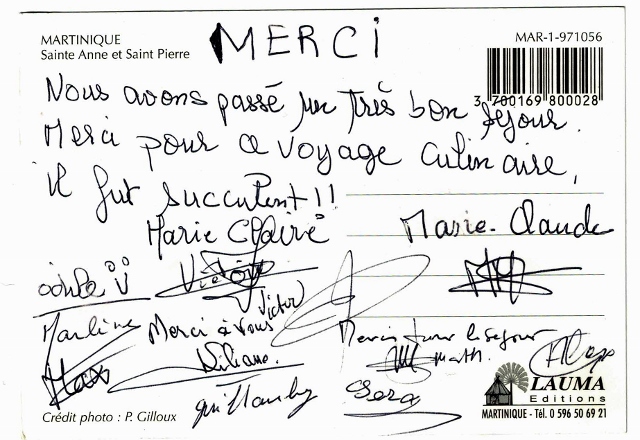 MARTINIQUE
Sainte Anne et Saint Pierre
MERCI
MAR-1-971056
3 700169 800028
Nous avons passé un très bon séjour.
Merci pour ce voyage culinaire,
il fut succulent !!
Marie Claire
Marie-Claude
Victor
Marline
Merci à vous
Merci pour le séjour
Max
Liliane.
math.
Alex
Sera
Crédit photo : P. Gilloux
LAUMA
Editions
MARTINIQUE - Tél. 0 596 50 69 21